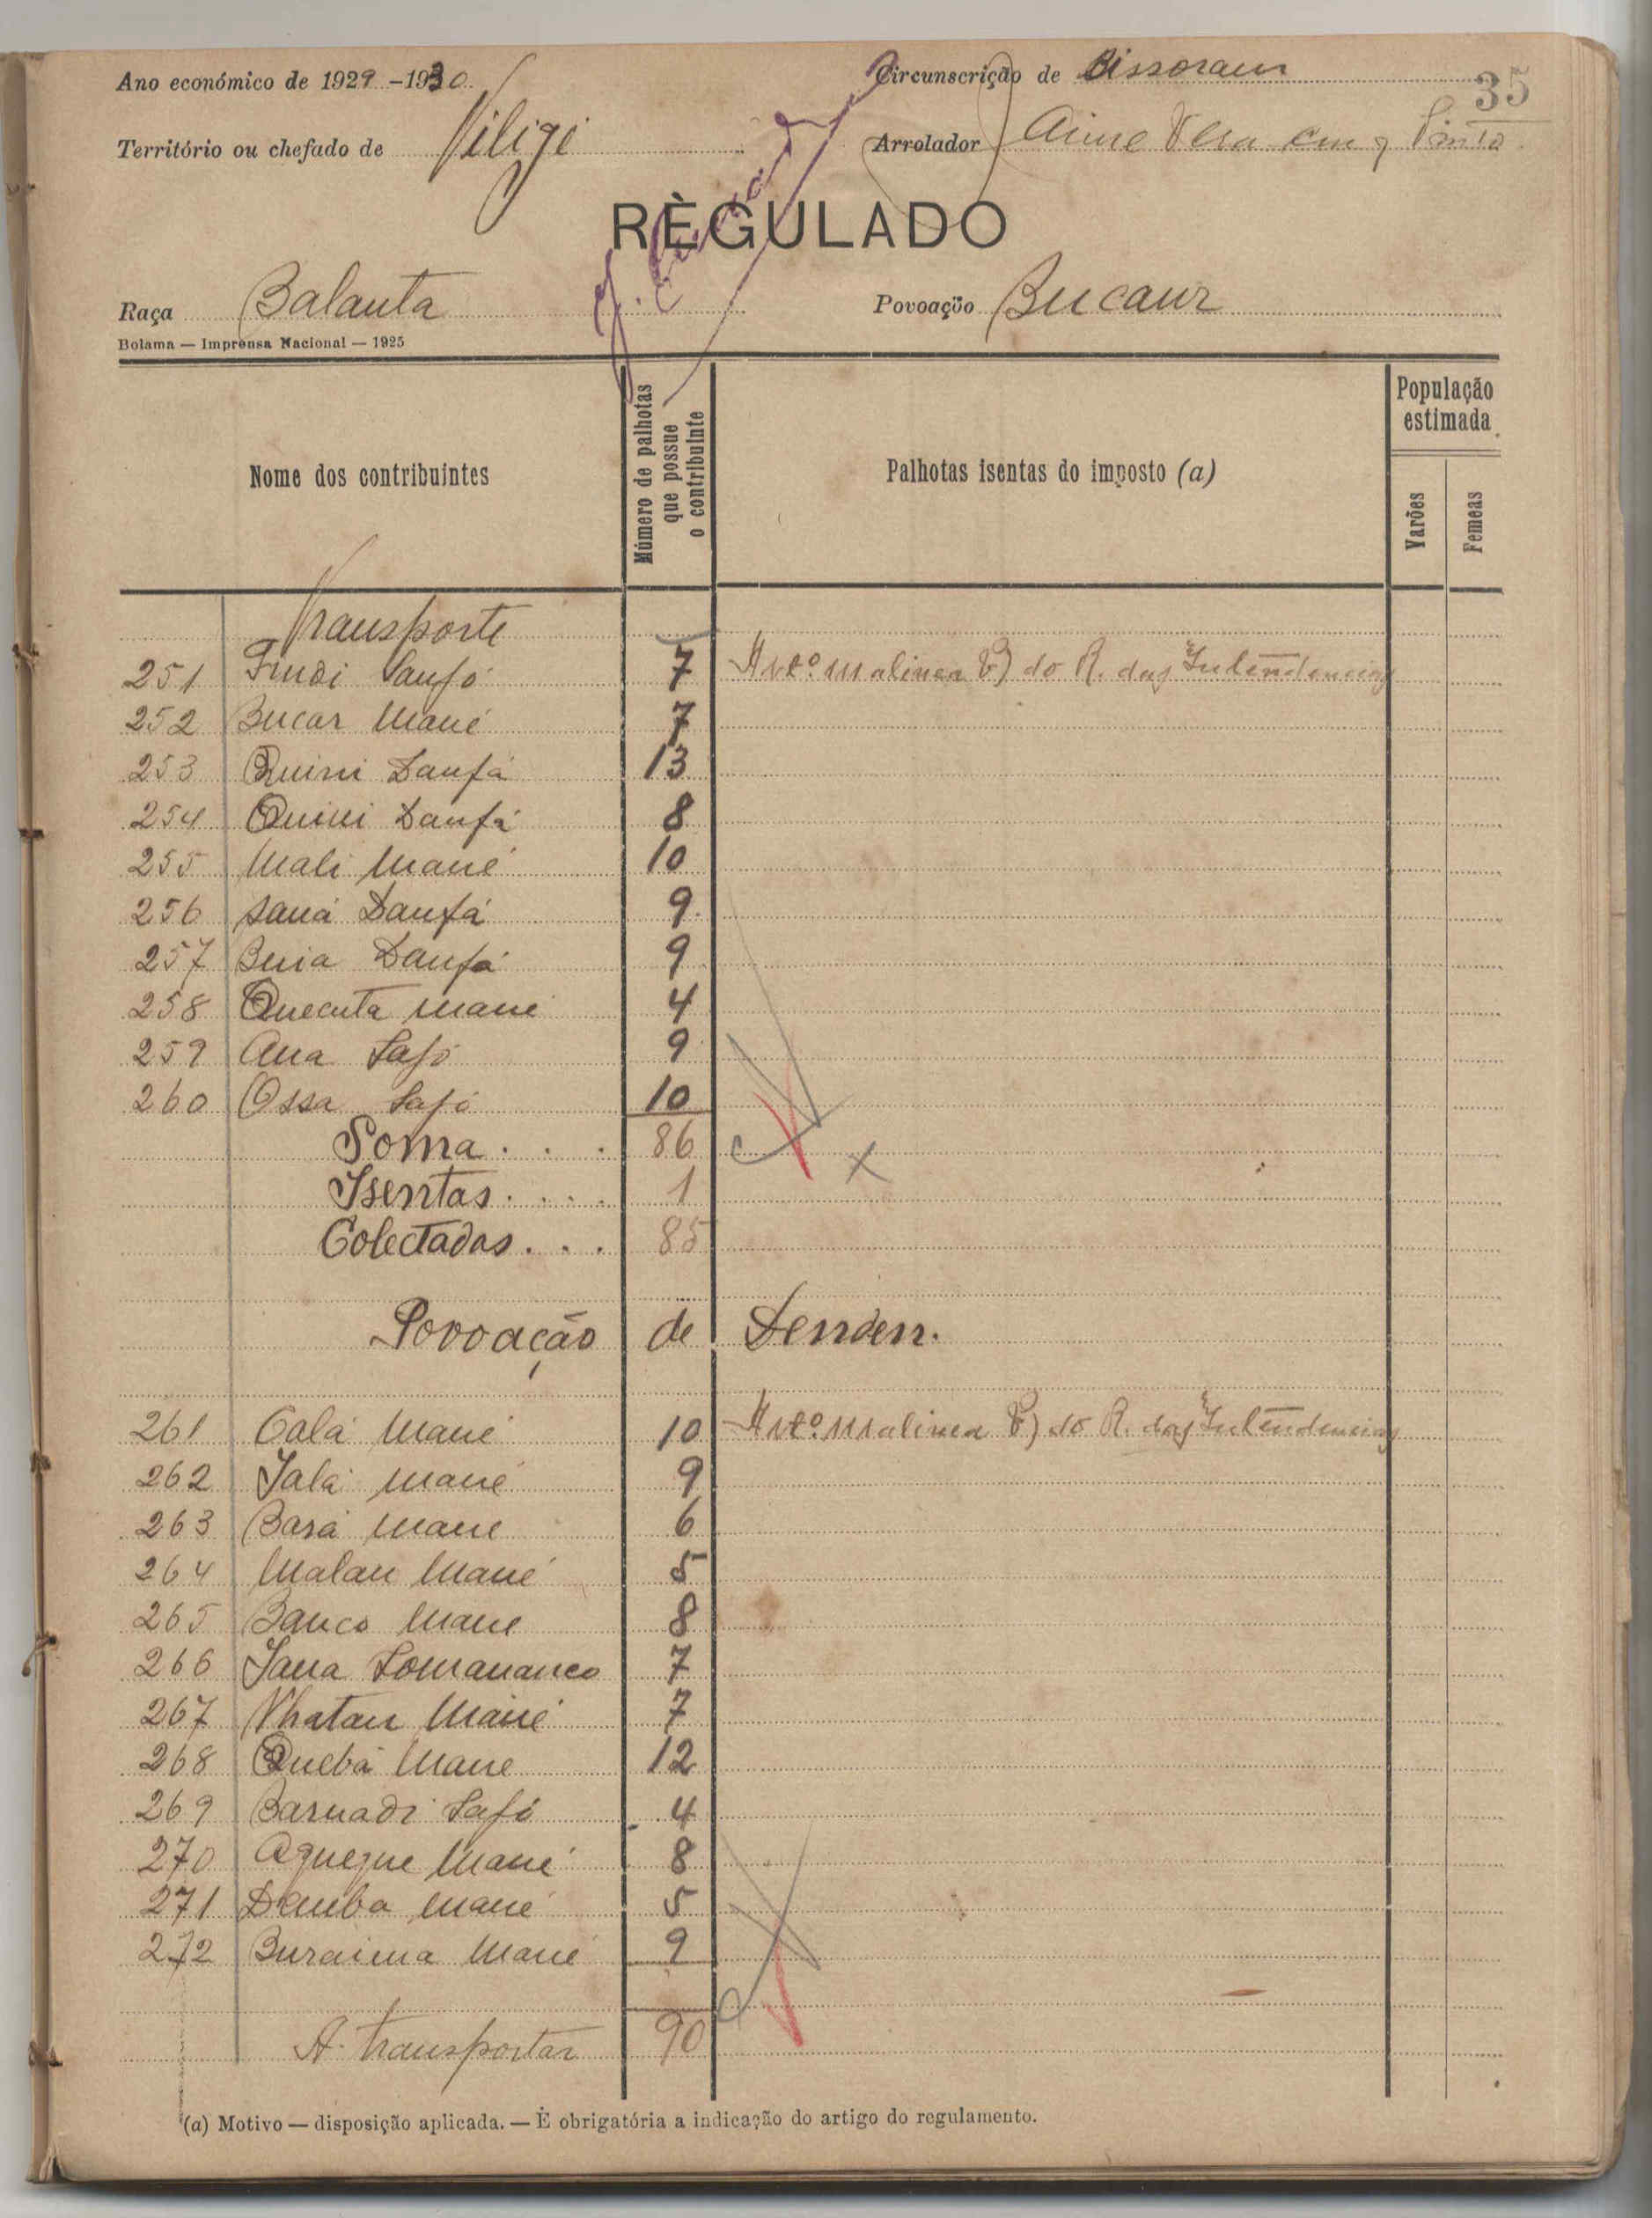 35
Ano económico de 1929 -1930
Circunscrição de Bissoram
Território ou chefado de Niligi
Arrolador
RÈGULADO
Raça Balanta
Povoação Bucaur
Bolama — Imprensa Nacional — 1925
Nome dos contribuintes
Número de palhotas que possue o contribuinte
Palhotas isentas do imposto (a)
População estimada
Varões
Femeas
Transporte
251 Findi Sanfó 7 Artº 11 alinea do R. das Intendencias
252 Bucar Mané 7
253 Quini Danfá 13
254 Quini Danfá 8
255 Mali Mané 10
256 Saná Danfá 9
257 Buia Danfá 9
258 Quecuta Mané 4
259 Ana Safó 9
260 Ossa Safó 10
Soma . . . 86
Isentas . . . . 1
Colectadas . . . 85
Povoação de Denden.
261 Calá Mané 10 Artº 11 alinea do R. das Intendencias
262 Jalá Mané 9
263 Bará Mané 6
264 Malan Mané 5
265 Banco Mane 8
266 Jana Somananco 7
267 Nhatan Mané 7
268 Quebá Mane 12
269 Barnadi Safó 4
270 Aqueque Mané 8
271 Demba Mané 5
272 Buraima Mané 9
A transportar 90
(a) Motivo — disposição aplicada. — É obrigatória a indicação do artigo do regulamento.